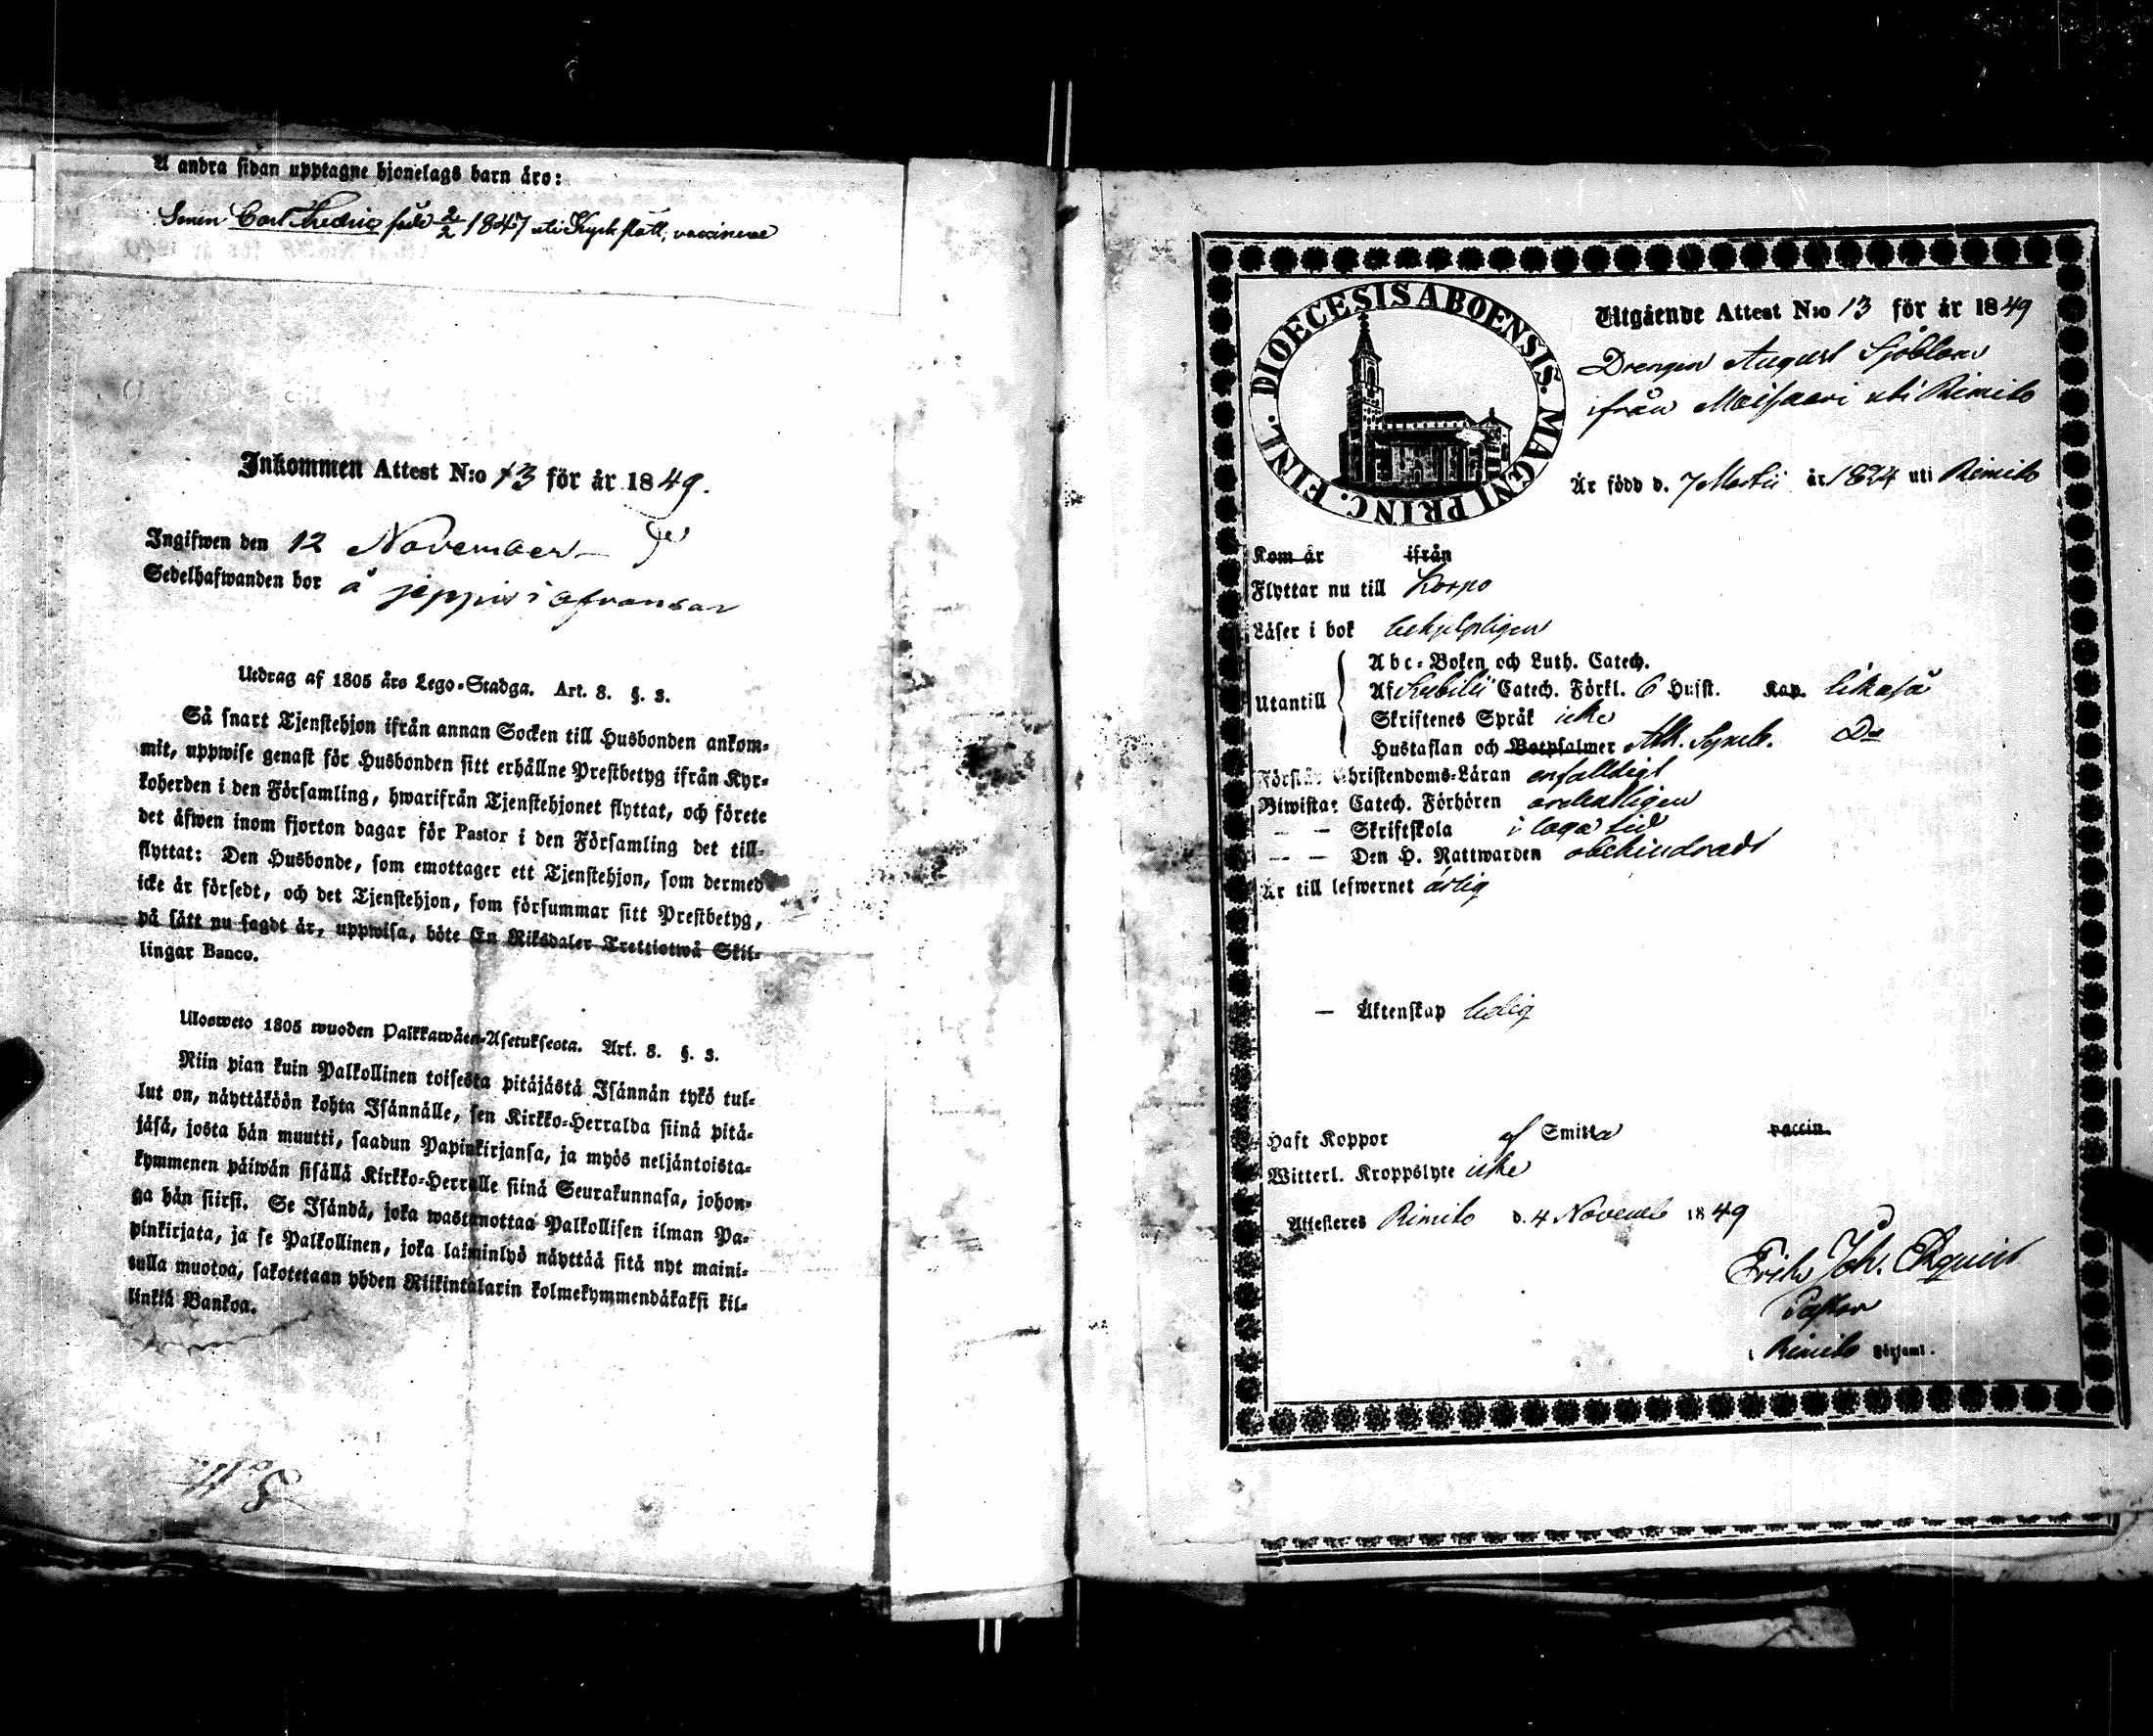 Å andra sidan upptagne hjonelags barn äro:
Sonen Carl Fredric född 2/2 1847 uti Kyrkslätt, vaccinerad
Inkommen Attest N:o 13 för år 1849.
Ingifwen den 12 November
Sedelhafwanden bor å
Utdrag af 1805 års Lego-Stadga. Art. 8. §. 3.
Så snart Tjenstehjon ifrån annan Socken till Husbonden ankom-
mit, uppwise genast för Husbonden sitt erhållne Prestbetyg ifrån Kyr-
koherden i den Församling, hwarifrån Tjenstehjonet flyttat, och förete
det äfwen inom fjorton dagar för Pastor i den Församling det till-
flyttat: Den Husbonde, som emottager ett Tjenstehjon, som dermed
icke är försedt, och det Tjenstehjon, som försummar sitt Prestbetyg,
på sätt nu sagdt är, uppwisa, böte En Riksdaler Trettiotwå Skil-
lingar Banco.
Ulosweto 1805 wuoden Palkkawäen-Asetuksesta. Art. 8. §. 3.
Niin pian kuin Palkollinen toisesta pitäjästä Isännän tykö tul-
lut on, näyttäköön kohta Isännälle, sen Kirkko-Herralda siinä pitä-
jäsä, josta hän muutti, saadun Papinkirjansa, ja myös neljäntoista-
kymmenen päiwän sisällä Kirkko-Herralle siinä Seurakunnasa, johon-
ga hän siirsi. Se Isändä, joka wastanottaa Palkollisen ilman Pa-
pinkirjata, ja se Palkollinen, joka laiminlyö näyttää sitä nyt maini-
tulla muotoa, sakotetaan yhden Riikintalarin kolmekymmendäkaksi kil-
linkiä Bankoa.
DIOECESIS ABOENSIS. MAGNI PRINC. FINL.
Utgående Attest N:o 13 för år 1849
Drengen August Sjöblom
ifrån Maisaari uti Rimito
Är född d. 7 Martii år 1824 uti Rimito
Kom år ifrån
Flyttar nu till Korpo
Läser i bok behjelpligen
Utantill
Abc-Boken och Luth. Catech.
Af Svebilii Catech. Förkl. 6 Hufst. Kap. likaså
Skriftenes Språk icke
Hustaflan och Botpsalmer Ath. Symb. Do
Förstår Christendoms-Läran enfalldigt
Biwistar Catech. Förhören ordentligen
— — Skriftskola i laga tid
— — Den H. Nattwarden obehindradt
Är till lefwernet ärlig
— Äktenskap ledig
Haft Koppor af Smitta vaccin.
Witterl. Kroppslyte icke
Attesteres Rimito d. 4 Novemb 1849
Erik Joh.
Pastor
i Rimito Församl.